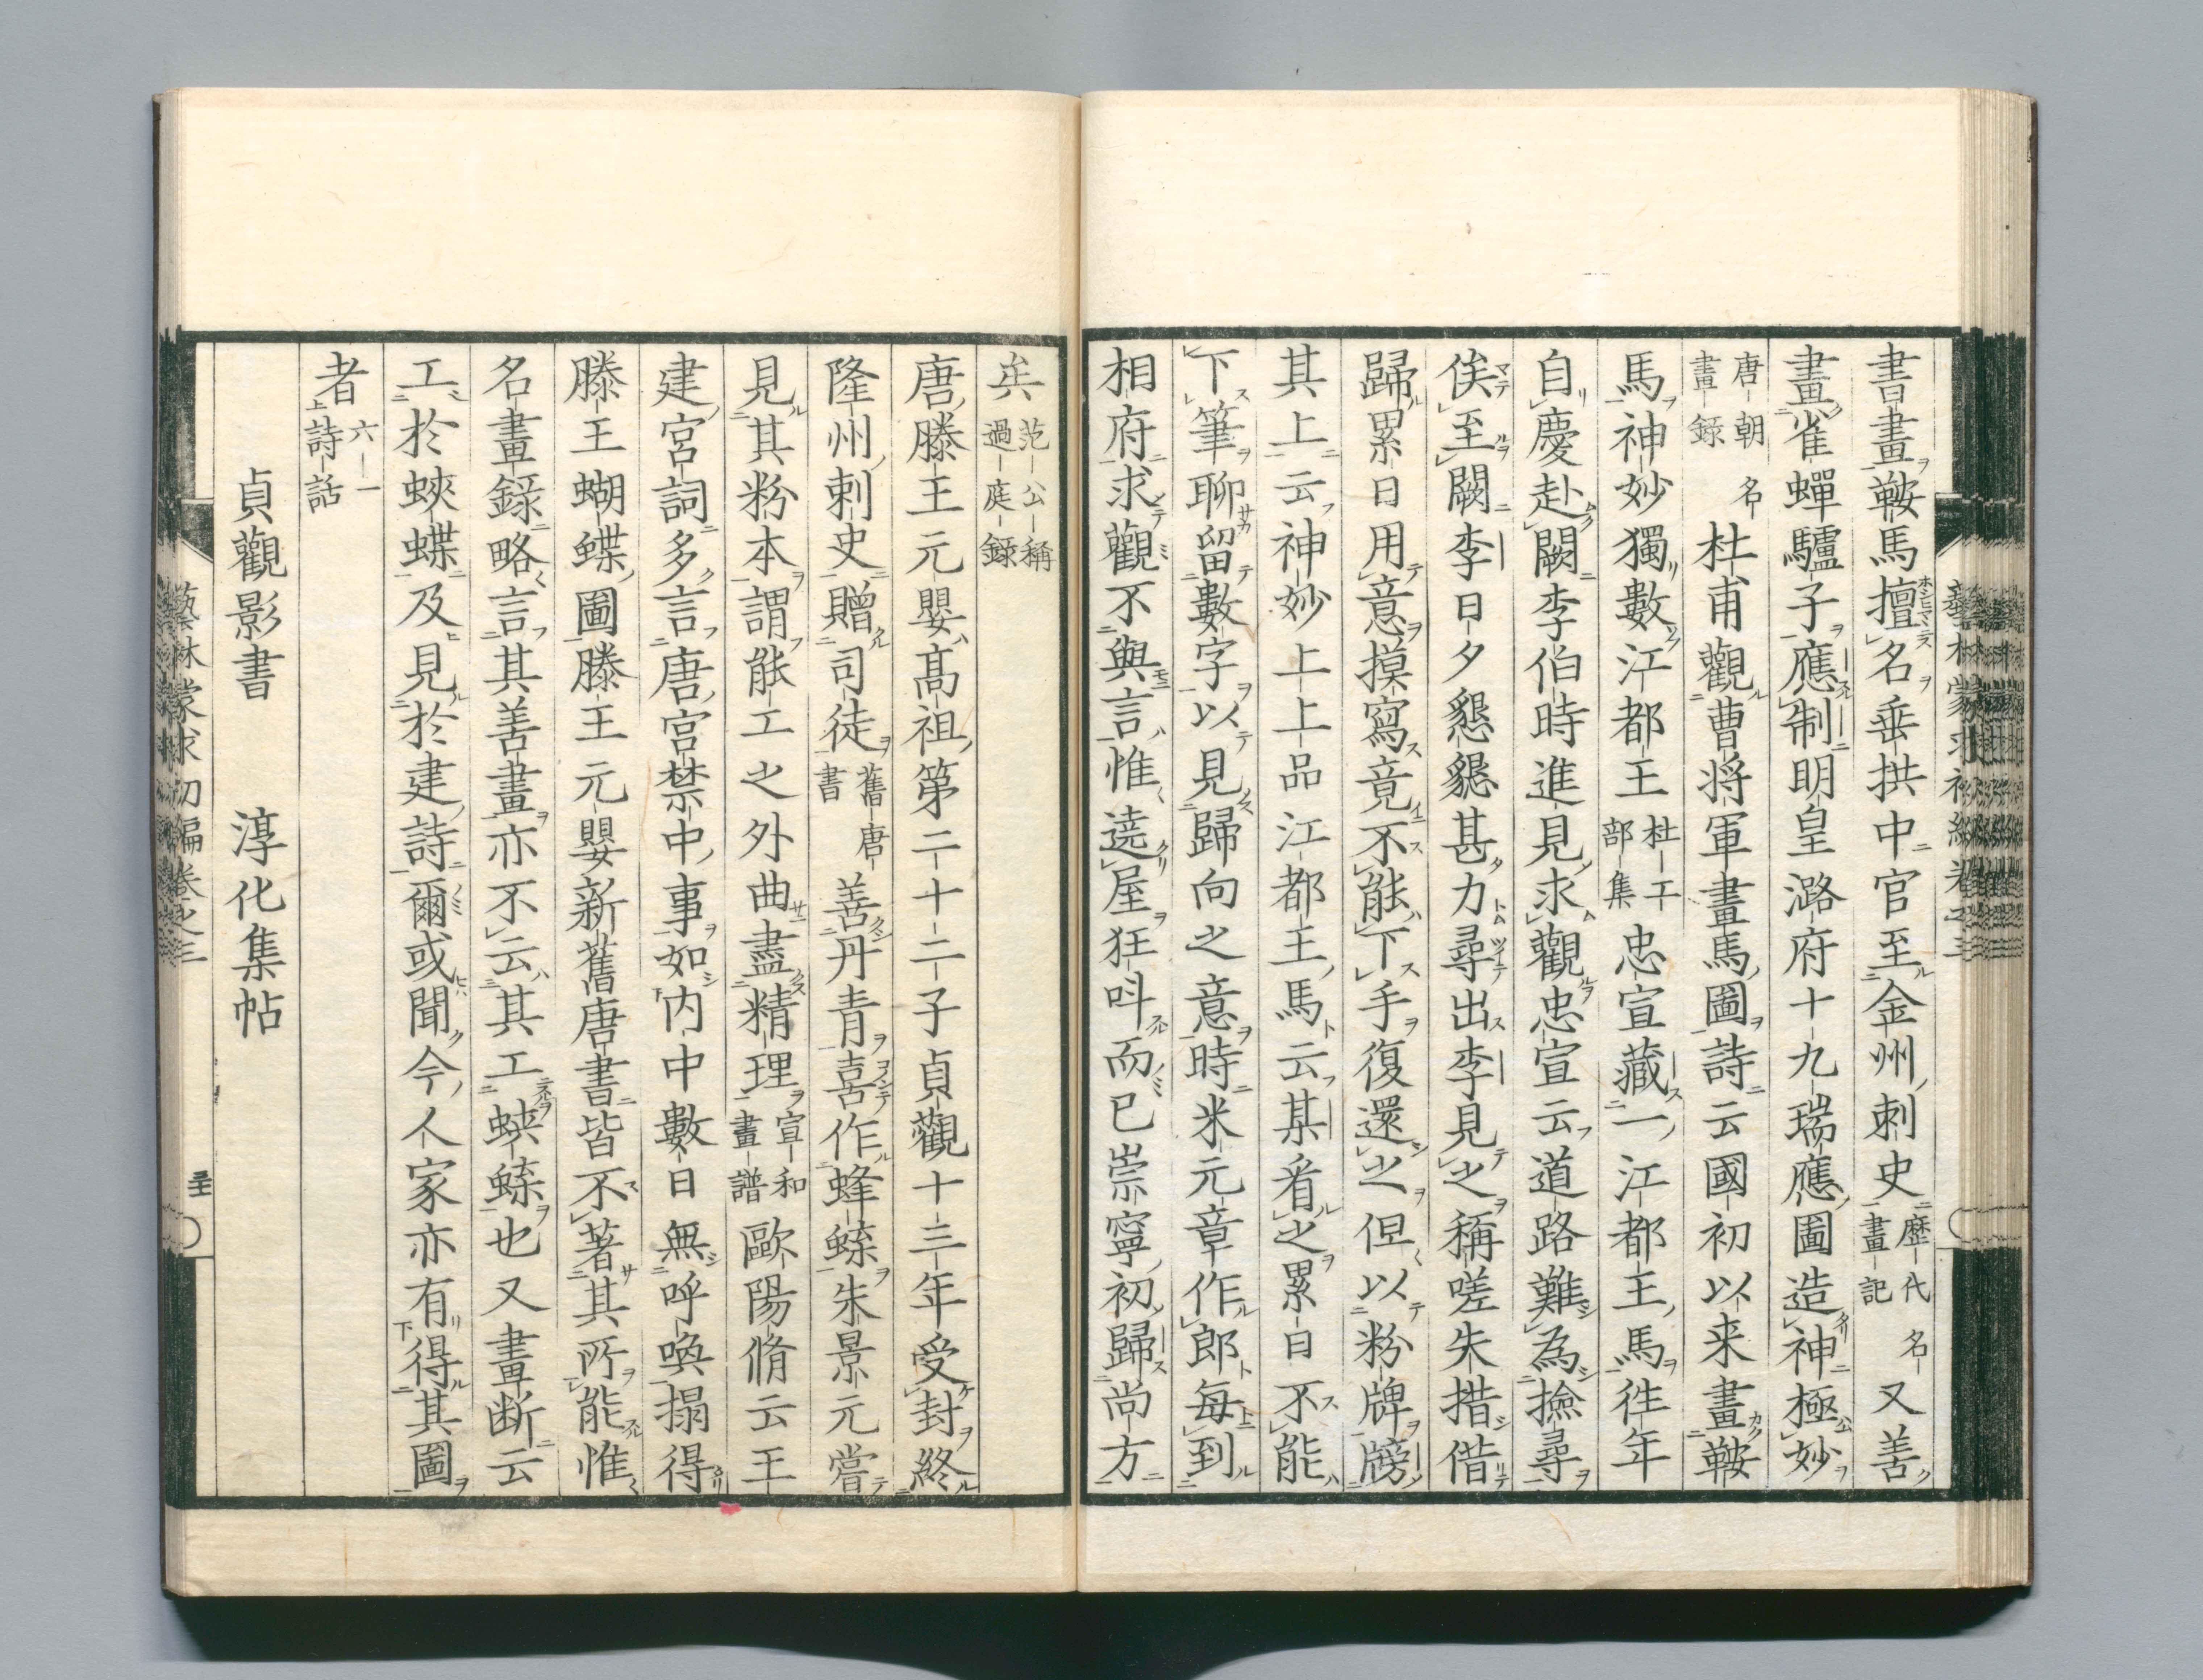 書畫鞍馬擅名垂拱中官至金州刺史歷代畫記名又善
畫雀蟬驢子應制明皇潞府十九瑞應圖造神極妙
唐朝名畫錄杜甫觀曹将軍畫馬圖詩云國初以来畫鞍
馬神妙獨數江都王杜工部集忠宣藏一江都王馬徃年
自慶赴闕李伯時進見求觀忠宣云道路難為撿尋
俟至闕李日夕懇懇甚力尋出李見之稱嗟失措借
歸累日用意摸寫竟不能下手復還之但以粉牌牓
其上云神妙上上品江都王馬云某看之累日不能
下筆聊留數字以見歸向之意時米元章作郎每到
相府求觀不與言惟遶屋狂呌而已崇寧初歸尚方
矣范公稱過庭録
唐滕王元嬰髙祖第二十二子貞觀十三年受封終
隆州刺史贈司徒舊唐書善丹青喜作蜂蝶朱景元嘗
見其粉本謂能工之外曲盡精理宣和畫譜歐陽脩云王
建宮詞多言唐宮禁中事如内中數日無呼喚搨得
滕王蝴蝶圖滕王元嬰新舊唐書皆不著其所能惟
名畫録略言其善畫亦不云其工蛺蝶也又畫断云
工於蛺蝶及見於建詩爾或聞今人家亦有得其圖
者六一詩話
貞觀影書　淳化集帖
藝林蒙求初編卷之三